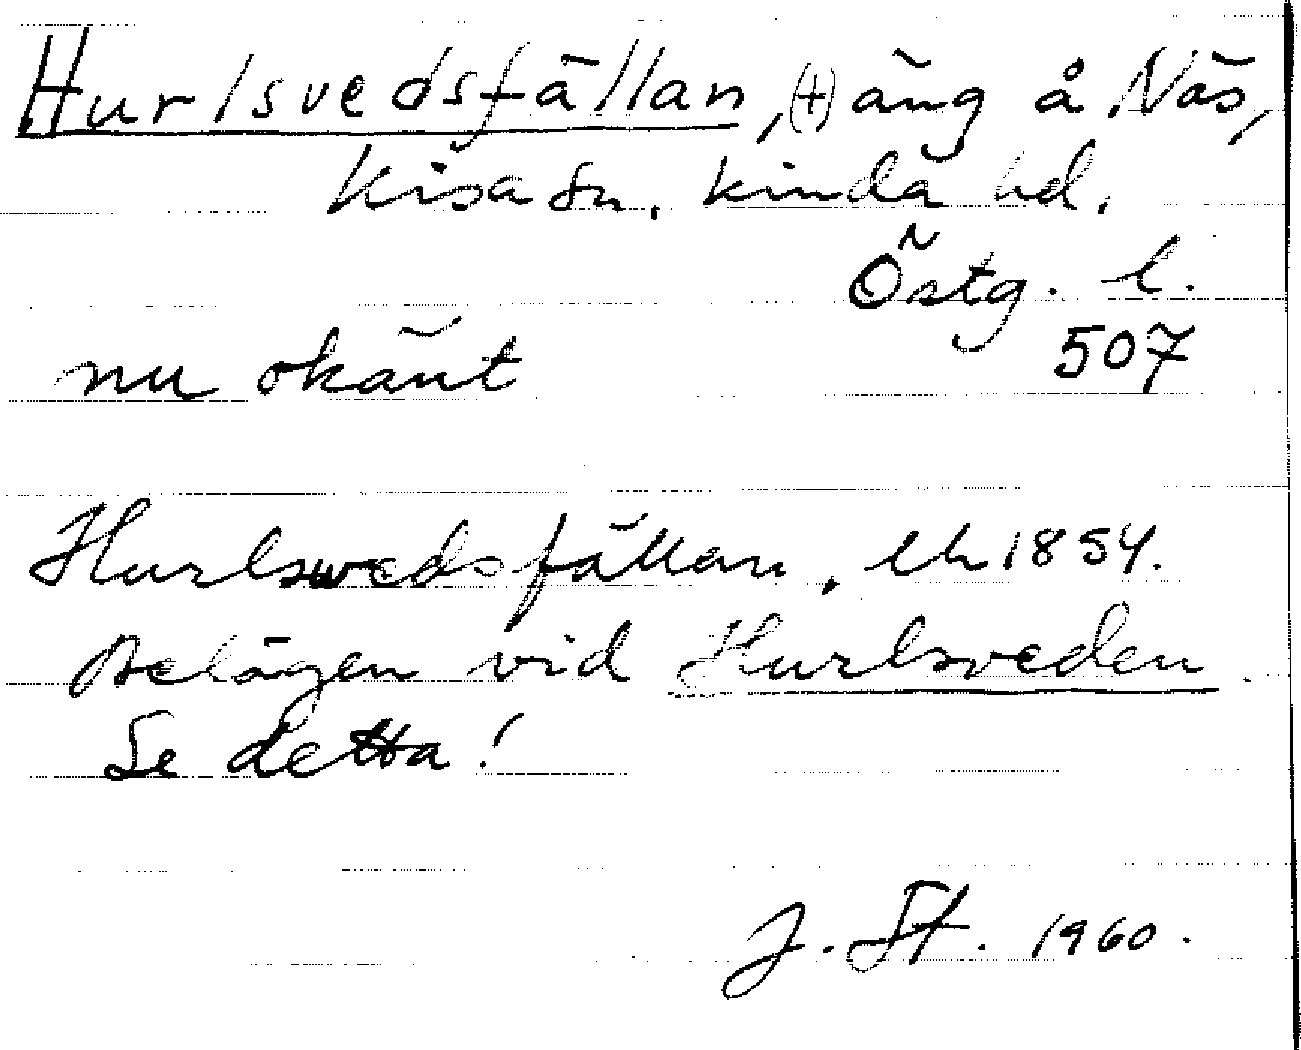 Hurlsvedsfällan, (+) äng å Näs,
Kisa sn. Kinda hd.
Östg. l.
nu okänt 507
Hurlswedsfällan, lh 1854.
Belägen vid Hurlsveden.
Se detta!
J. St. 1960.